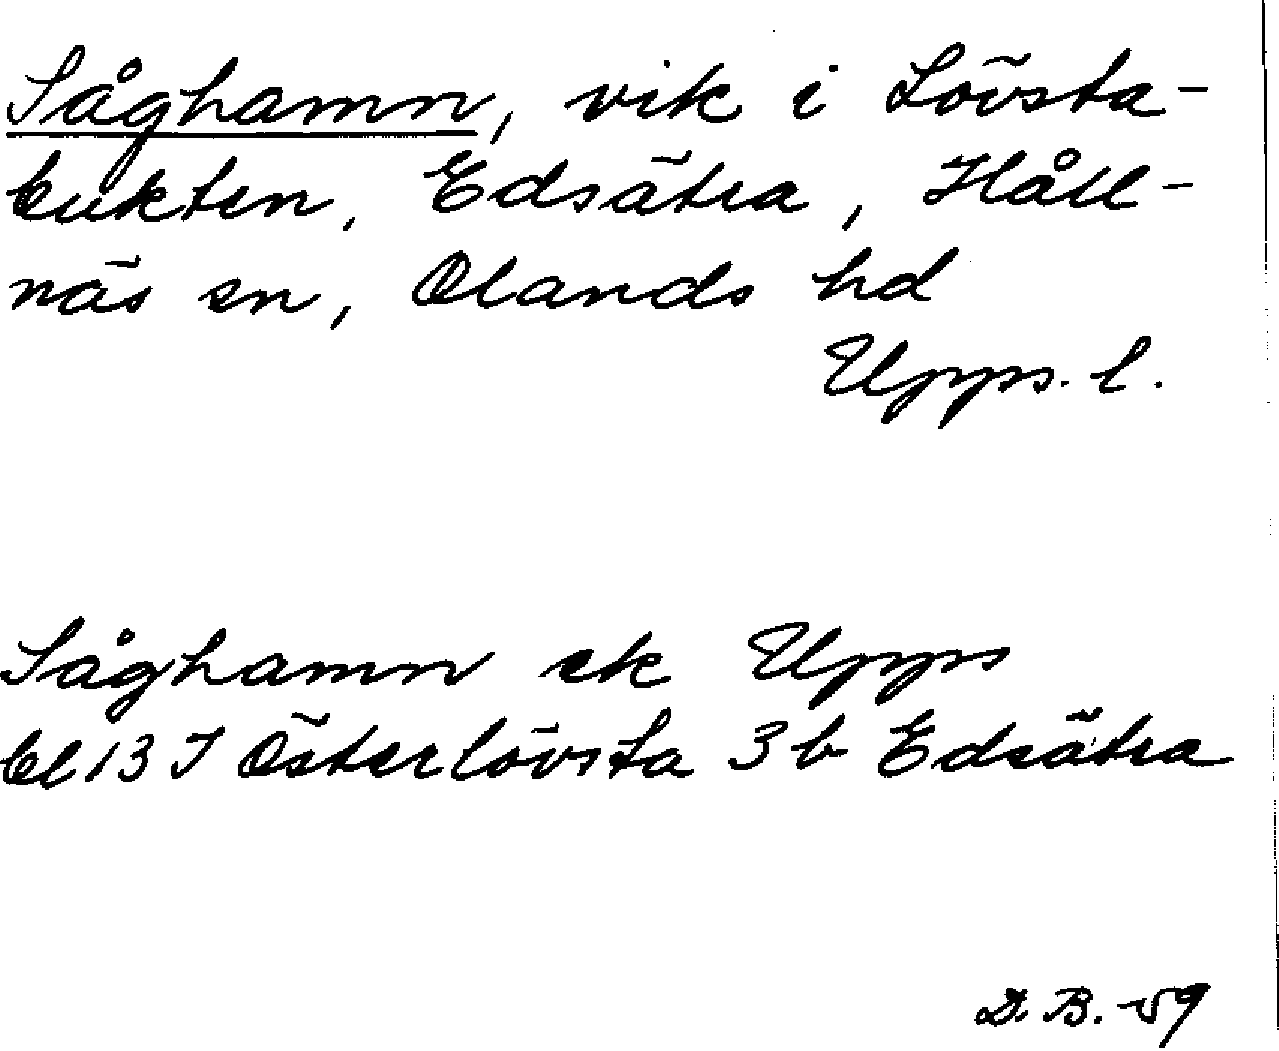 Såghamn, vik i Lövsta-
bukten, Edsätra, Håll-
näs sn, Olands hd
Upps. l.
Såghamn ek Upps
bl 13 I Österlövsta 3 b Edsätra
D. B. -59